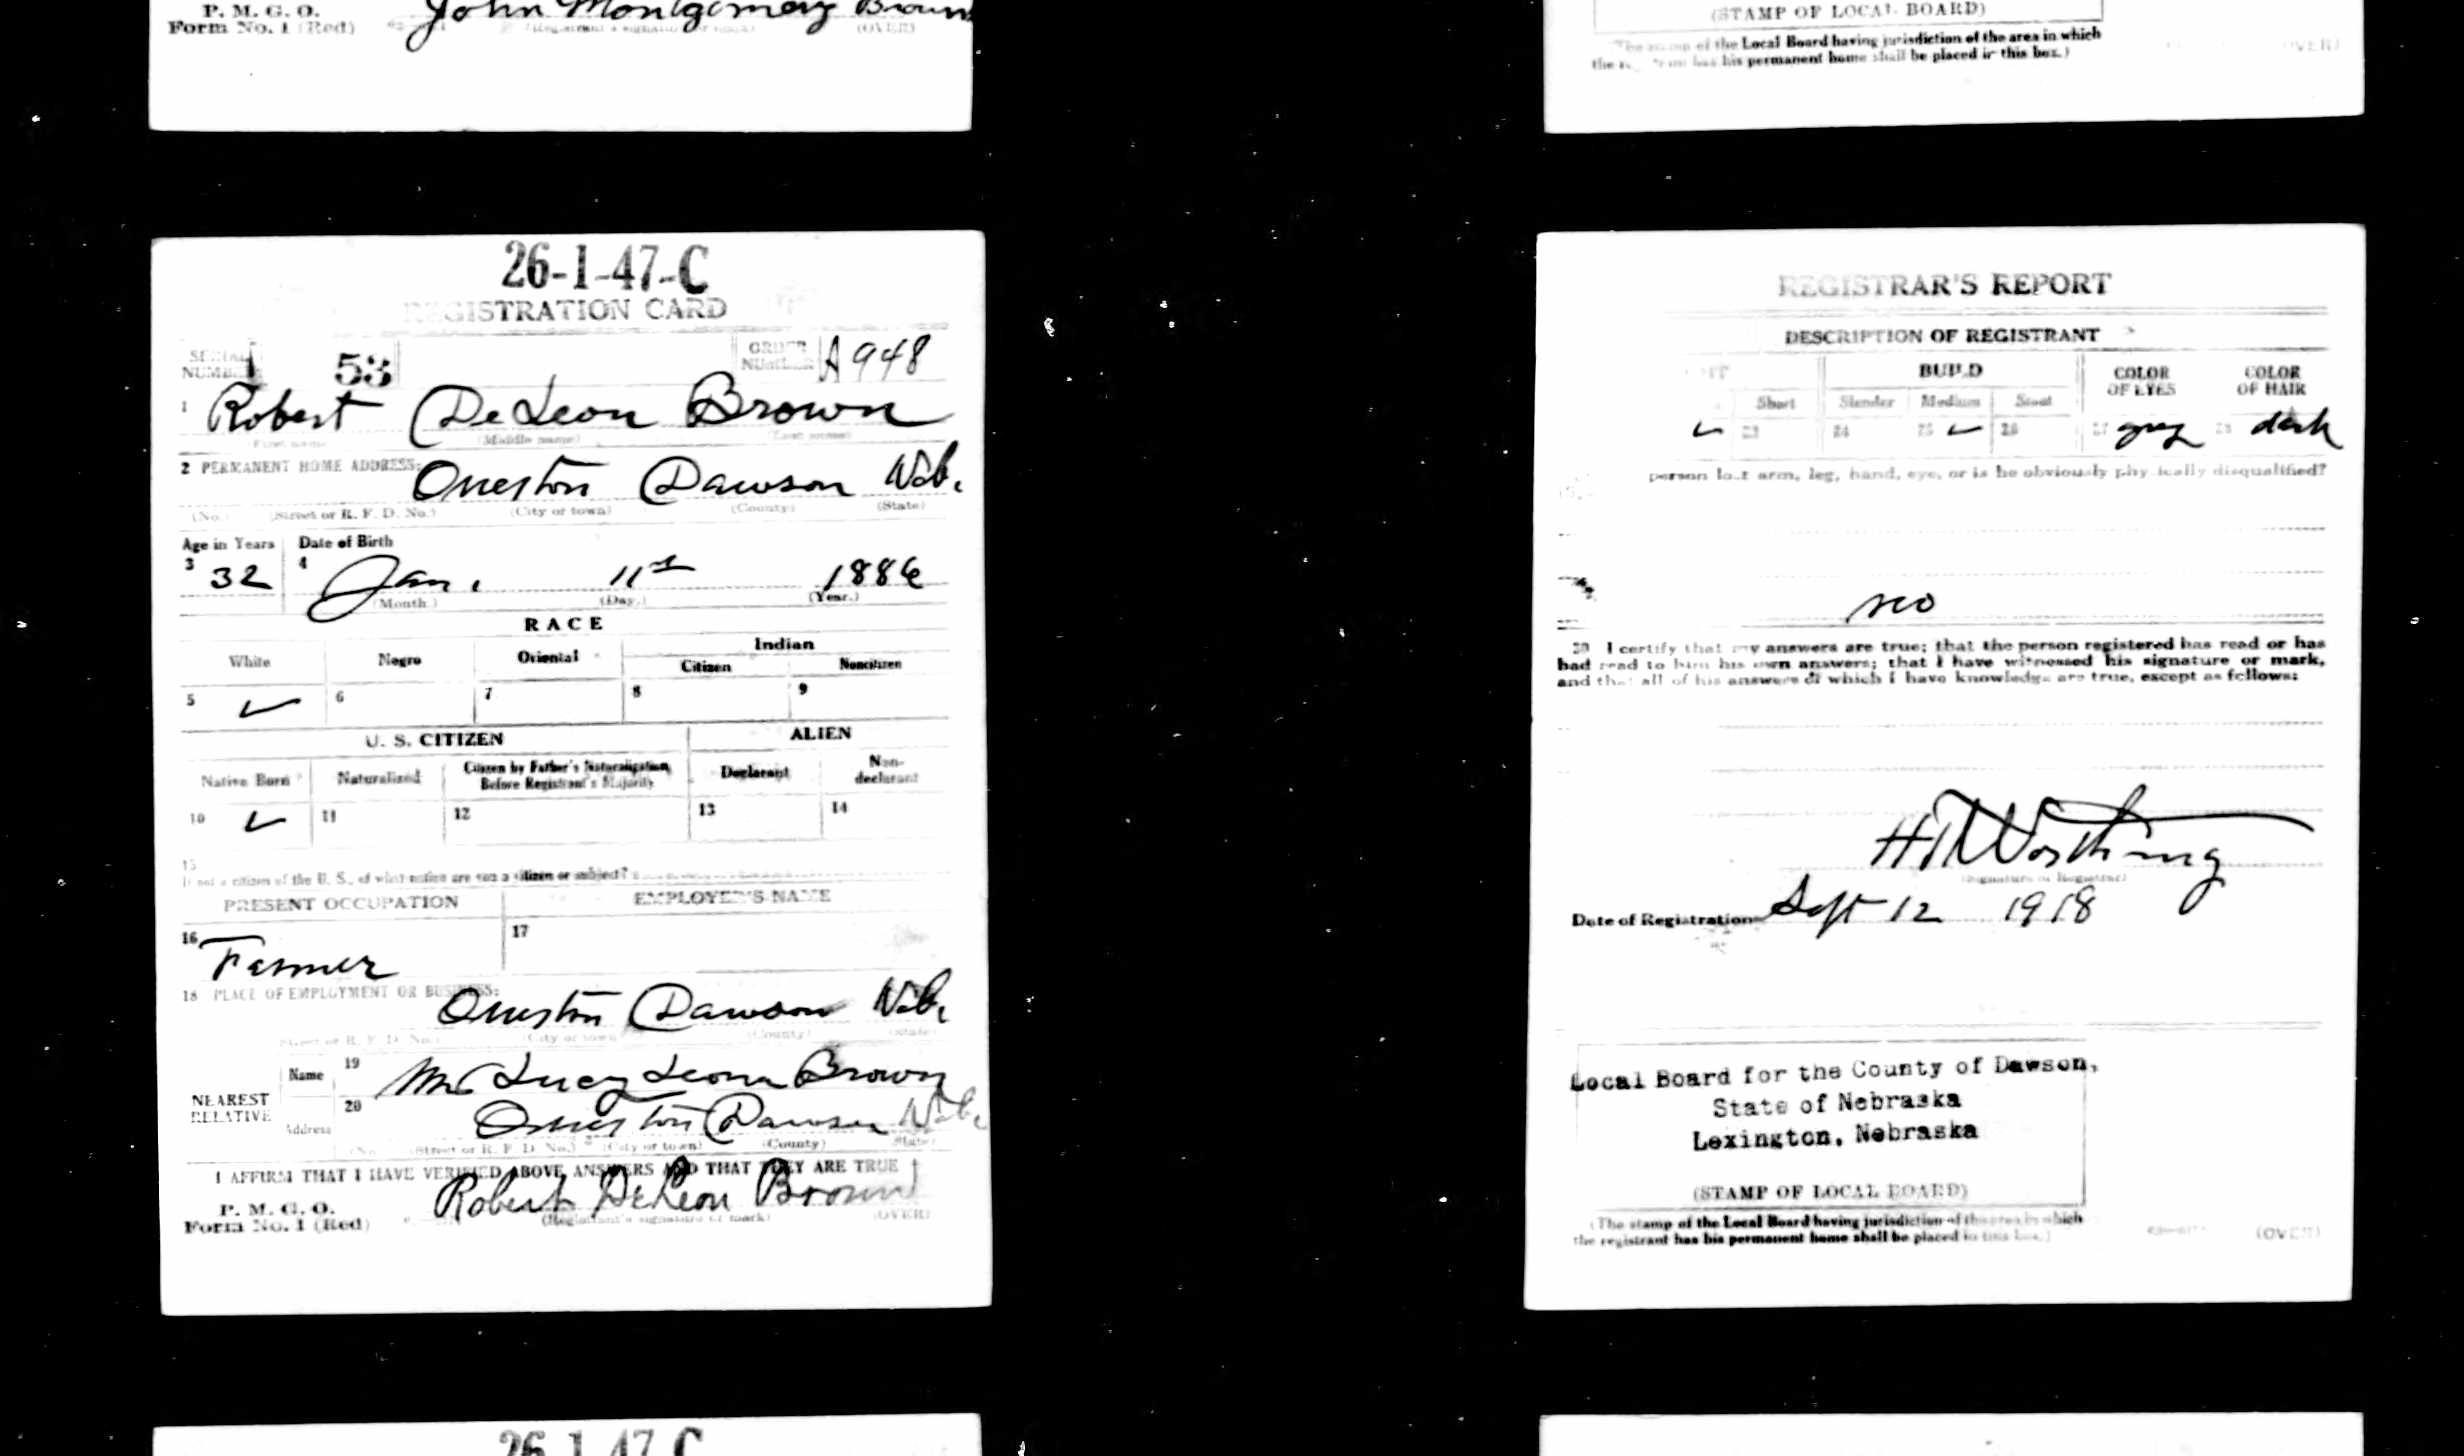 P. M. G. O.
Form No. 1 (Red)
John Montgomery Brown
(Registrant's signature or mark)
(OVER)
26-1-47-C
REGISTRATION CARD
SERIAL NUMBER 1 53
ORDER NUMBER A 948
1 Robert DeLeon Brown
(First name) (Middle name) (Last name)
2 PERMANENT HOME ADDRESS:
Dawson Neb.
(No.) (Street or R. F. D. No.) (City or town) (County) (State)
Age in Years Date of Birth
3 32 4 Jan. 11th 1886
(Month.) (Day.) (Year.)
RACE
White Negro Oriental Indian
Citizen Noncitizen
5 ✓ 6 7 8 9
U. S. CITIZEN ALIEN
Native Born Naturalized Citizen by Father's Naturalization Before Registrant's Majority Declarant Non-declarant
10 ✓ 11 12 13 14
15
If not a citizen of the U. S., of what nation are you a citizen or subject?
PRESENT OCCUPATION EMPLOYER'S NAME
16 Farmer 17
18 PLACE OF EMPLOYMENT OR BUSINESS:
Dawson Neb.
(Street or R. F. D. No.) (City or town) (County) (State)
NEAREST RELATIVE
Name 19 Lucy Leona Brown
Address 20 Dawson Neb
(No.) (Street or R. F. D. No.) (City or town) (County) (State)
I AFFIRM THAT I HAVE VERIFIED ABOVE ANSWERS AND THAT THEY ARE TRUE
P. M. G. O.
Form No. 1 (Red)
Robert DeLeon Brown
(Registrant's signature or mark)
(OVER)
26-1-47-C
(STAMP OF LOCAL BOARD)
of the Local Board having jurisdiction of the area in which
the registrant has his permanent home shall be placed in this box.)
(OVER)
REGISTRAR'S REPORT
DESCRIPTION OF REGISTRANT
BUILD COLOR OF EYES COLOR OF HAIR
Short Slender Medium Stout
✓ 23 24 25 ✓ 26 27 gray 28 dark
person lost arm, leg, hand, eye, or is he obviously physically disqualified?
no
30 I certify that my answers are true; that the person registered has read or has
had read to him his own answers; that I have witnessed his signature or mark,
and that all of his answers of which I have knowledge are true, except as follows:
(Signature of Registrar)
Date of Registration Sept 12 1918
Local Board for the County of Dawson,
State of Nebraska
Lexington, Nebraska
(STAMP OF LOCAL BOARD)
(The stamp of the Local Board having jurisdiction of the area in which
the registrant has his permanent home shall be placed in this box.)
(OVER)